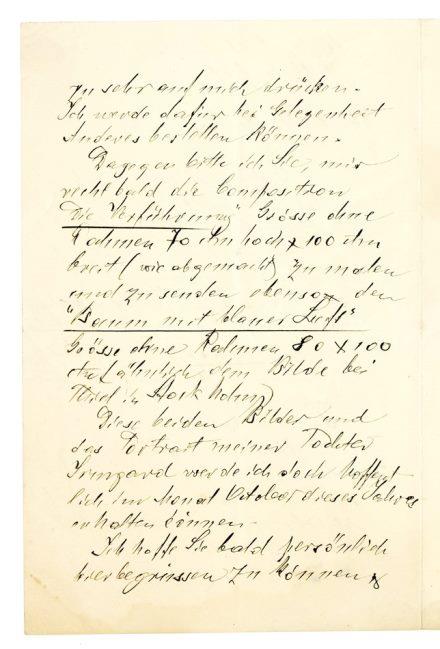 zu sehr auf mich drücken.
Ich werde dafür bei Gelegenheit
Anderes bestellen können.
Dagegen bitte ich Sie, mir
recht bald die Composition
"Die Verführung" Grösse ohne
Rahmen 70 cm hoch x 100 ctm
breit (wie abgemacht) zu malen
und zu senden ebenso den
"Baum mit blauer Luft"
Grösse ohne Rahmen 80 x 100
ctm (ähnlich dem Bilde bei
in Stockholm)
Diese beiden Bilder und
das Portrait meiner Tochter
Irmgard werde ich doch hoffent
lich im Monat October dieses Jahres
erhalten können.
Ich hoffe Sie bald persönlich
hier begrüssen zu können